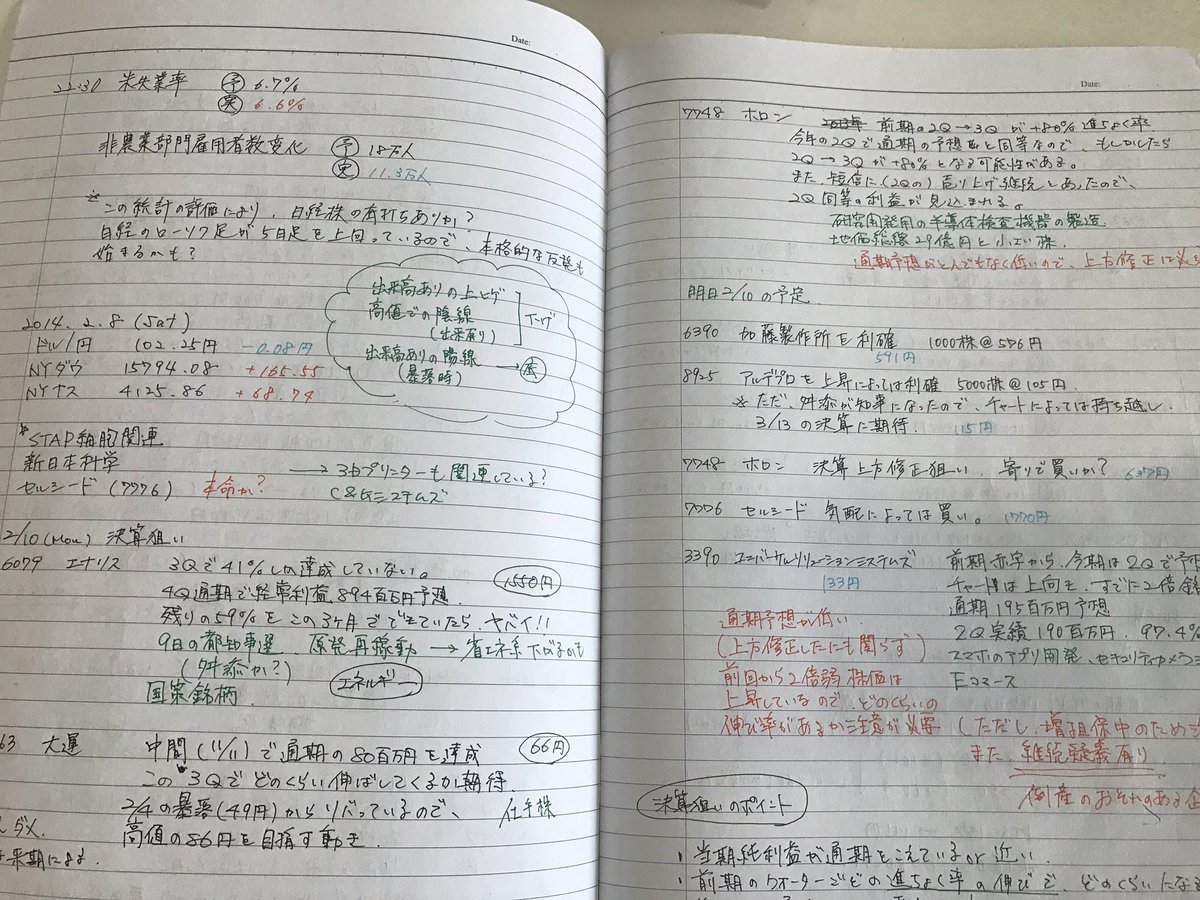 Date:
22:30 米失業率 予 6.7%
実 6.6%
非農業部門雇用者数変化 予 18万人
実 11.3万人
※この統計の評価により、日経株の本打ちありか?
日経のローソク足が5日足を上回っているので、本格的な反発も
始まるかも?
出来高ありの上ヒゲ
高値での陰線
(出来有り)
下げ
出来高ありの陽線
(暴落時)
→ 底
2014.2.8 (Sat)
ドル/円 102.25円 -0.08円
NYダウ 15794.08 +165.55
NYナス 4125.86 +68.74
*STAP細胞関連
新日本科学
セルシード (7776) 本命か?
→ 3Dプリンターも関連している?
C&Gシステムズ
2/10 (Mon) 決算狙い
6079 エナリス 3Qで41%しか達成していない。
1550円
4Q通期で経常利益894百万円予想.
残りの59%をこの3ヶ月でできていたら、ヤバイ!!
9日の都知事選 原発再稼動 → 省エネ系下がるかも
(舛添か?)
エネルギー
国策銘柄
63 大運 中間 (11/11) で通期の80百万円を達成
66円
この3Qでどのくらい伸ばしてくるか期待.
2/4の暴落(49円)からリバっているので、
仕手株
高値の86円を目指す動き
来期による.
Date:
7748 ホロン 前期の2Q→3Qが+80%進ちょく率
今年の2Qで通期の予想と同等なので、もしかしたら
2Q→3Qが+80%となる可能性がある。
また、短信に(2Qの)売り上げ継続とあったので、
2Q同等の利益が見込まれる。
研究開発用の半導体検査機器の製造
総額29億円と小さい株.
通期予想がとんでもなく低いので、上方修正は必
明日2/10の予定
6390 加藤製作所を利確 1000株@576円
591円
8925 アルデプロを上昇によっては利確 5000株@105円.
※ただ、舛添が知事になったので、チャートによっては持ち越し.
3/13の決算に期待. 115円
7748 ホロン 決算上方修正狙い、寄りで買いか? 637円
7776 セルシード 気配によっては買い。 1770円
3390 ユニバーサルソリューションシステムズ
133円
前期赤字から、今期は2Qで予
チャートは上向き、すでに2倍
通期195百万円予想
2Q実績190百万円. 97.4%
スマホのアプリ開発、セキュリティカメラ
Eコマース
通期予想が低い
(上方修正したにも関らず)
前回から2倍弱株価は
上昇しているので、どのくらいの
伸び率があるか注意が必要
(ただし、増担保中のため
また、継続疑義有り
倒産のおそれのある
決算狙いのポイント
・当期純利益が通期をこえている or 近い.
・前期のクォーターごとの進ちょく率の伸びで、どのくらいになる